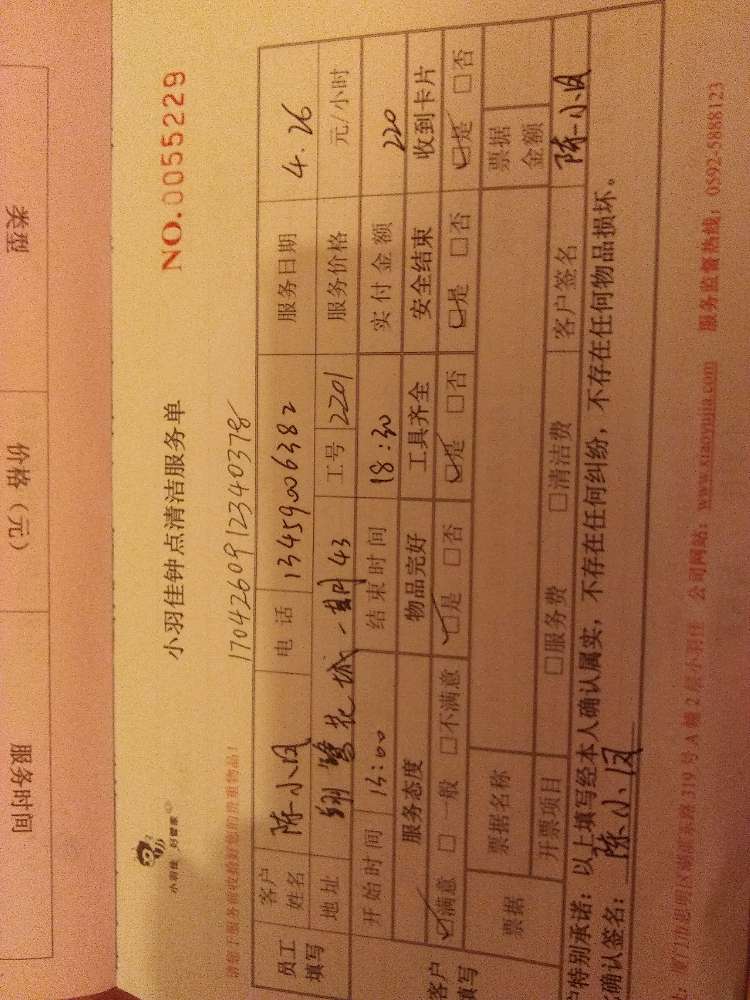 小羽佳 好管家
小羽佳钟点清洁服务单
NO.0055229
请您于服务前收拾好您的贵重物品!
1704260912340378
员工填写
客户姓名 陈小凤 电话 13459006382 服务日期 4.26
地址 翔鹭花城一期43 工号 2201 服务价格 元/小时
开始时间 15:00 结束时间 18:30 实付金额 220
客户填写
服务态度 物品完好 工具齐全 安全结束 收到卡片
☑满意 □一般 □不满意 ☑是 □否 ☑是 □否 ☑是 □否 ☑是 □否
票据 票据名称 票据金额
开票项目 □服务费 □清洁费 客户签名 陈小凤
户特别承诺:以上填写经本人确认属实,不存在任何纠纷,不存在任何物品损坏。
确认签名:陈小凤
厦门市思明区湖滨东路319号A幢2层小羽佳 公司网站:www.xiaoyujia.com 服务监督热线:0592-5888123
类型
价格(元)
服务时间